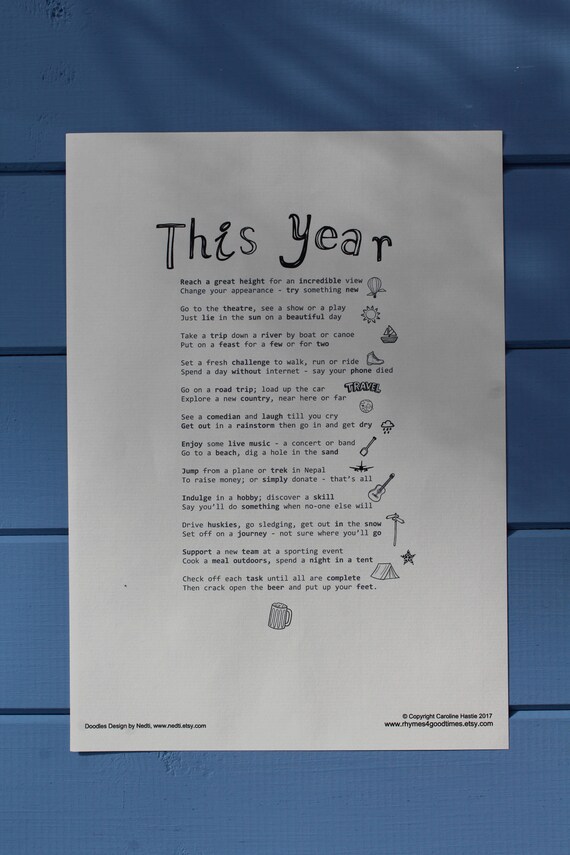 This Year
Reach a great height for an incredible view
Change your appearance - try something new
Go to the theatre, see a show or a play
Just lie in the sun on a beautiful day
Take a trip down a river by boat or canoe
Put on a feast for a few or for two
Set a fresh challenge to walk, run or ride
Spend a day without internet - say your phone died
Go on a road trip; load up the car
TRAVEL
Explore a new country, near here or far
See a comedian and laugh till you cry
Get out in a rainstorm then go in and get dry
Enjoy some live music - a concert or band
Go to a beach, dig a hole in the sand
Jump from a plane or trek in Nepal
To raise money; or simply donate - that's all
Indulge in a hobby; discover a skill
Say you'll do something when no-one else will
Drive huskies, go sledging, get out in the snow
Set off on a journey - not sure where you'll go
Support a new team at a sporting event
Cook a meal outdoors, spend a night in a tent
Check off each task until all are complete
Then crack open the beer and put up your feet.
Doodles Design by Nedti, www.nedti.etsy.com
© Copyright Caroline Hastie 2017
www.rhymes4goodtimes.etsy.com